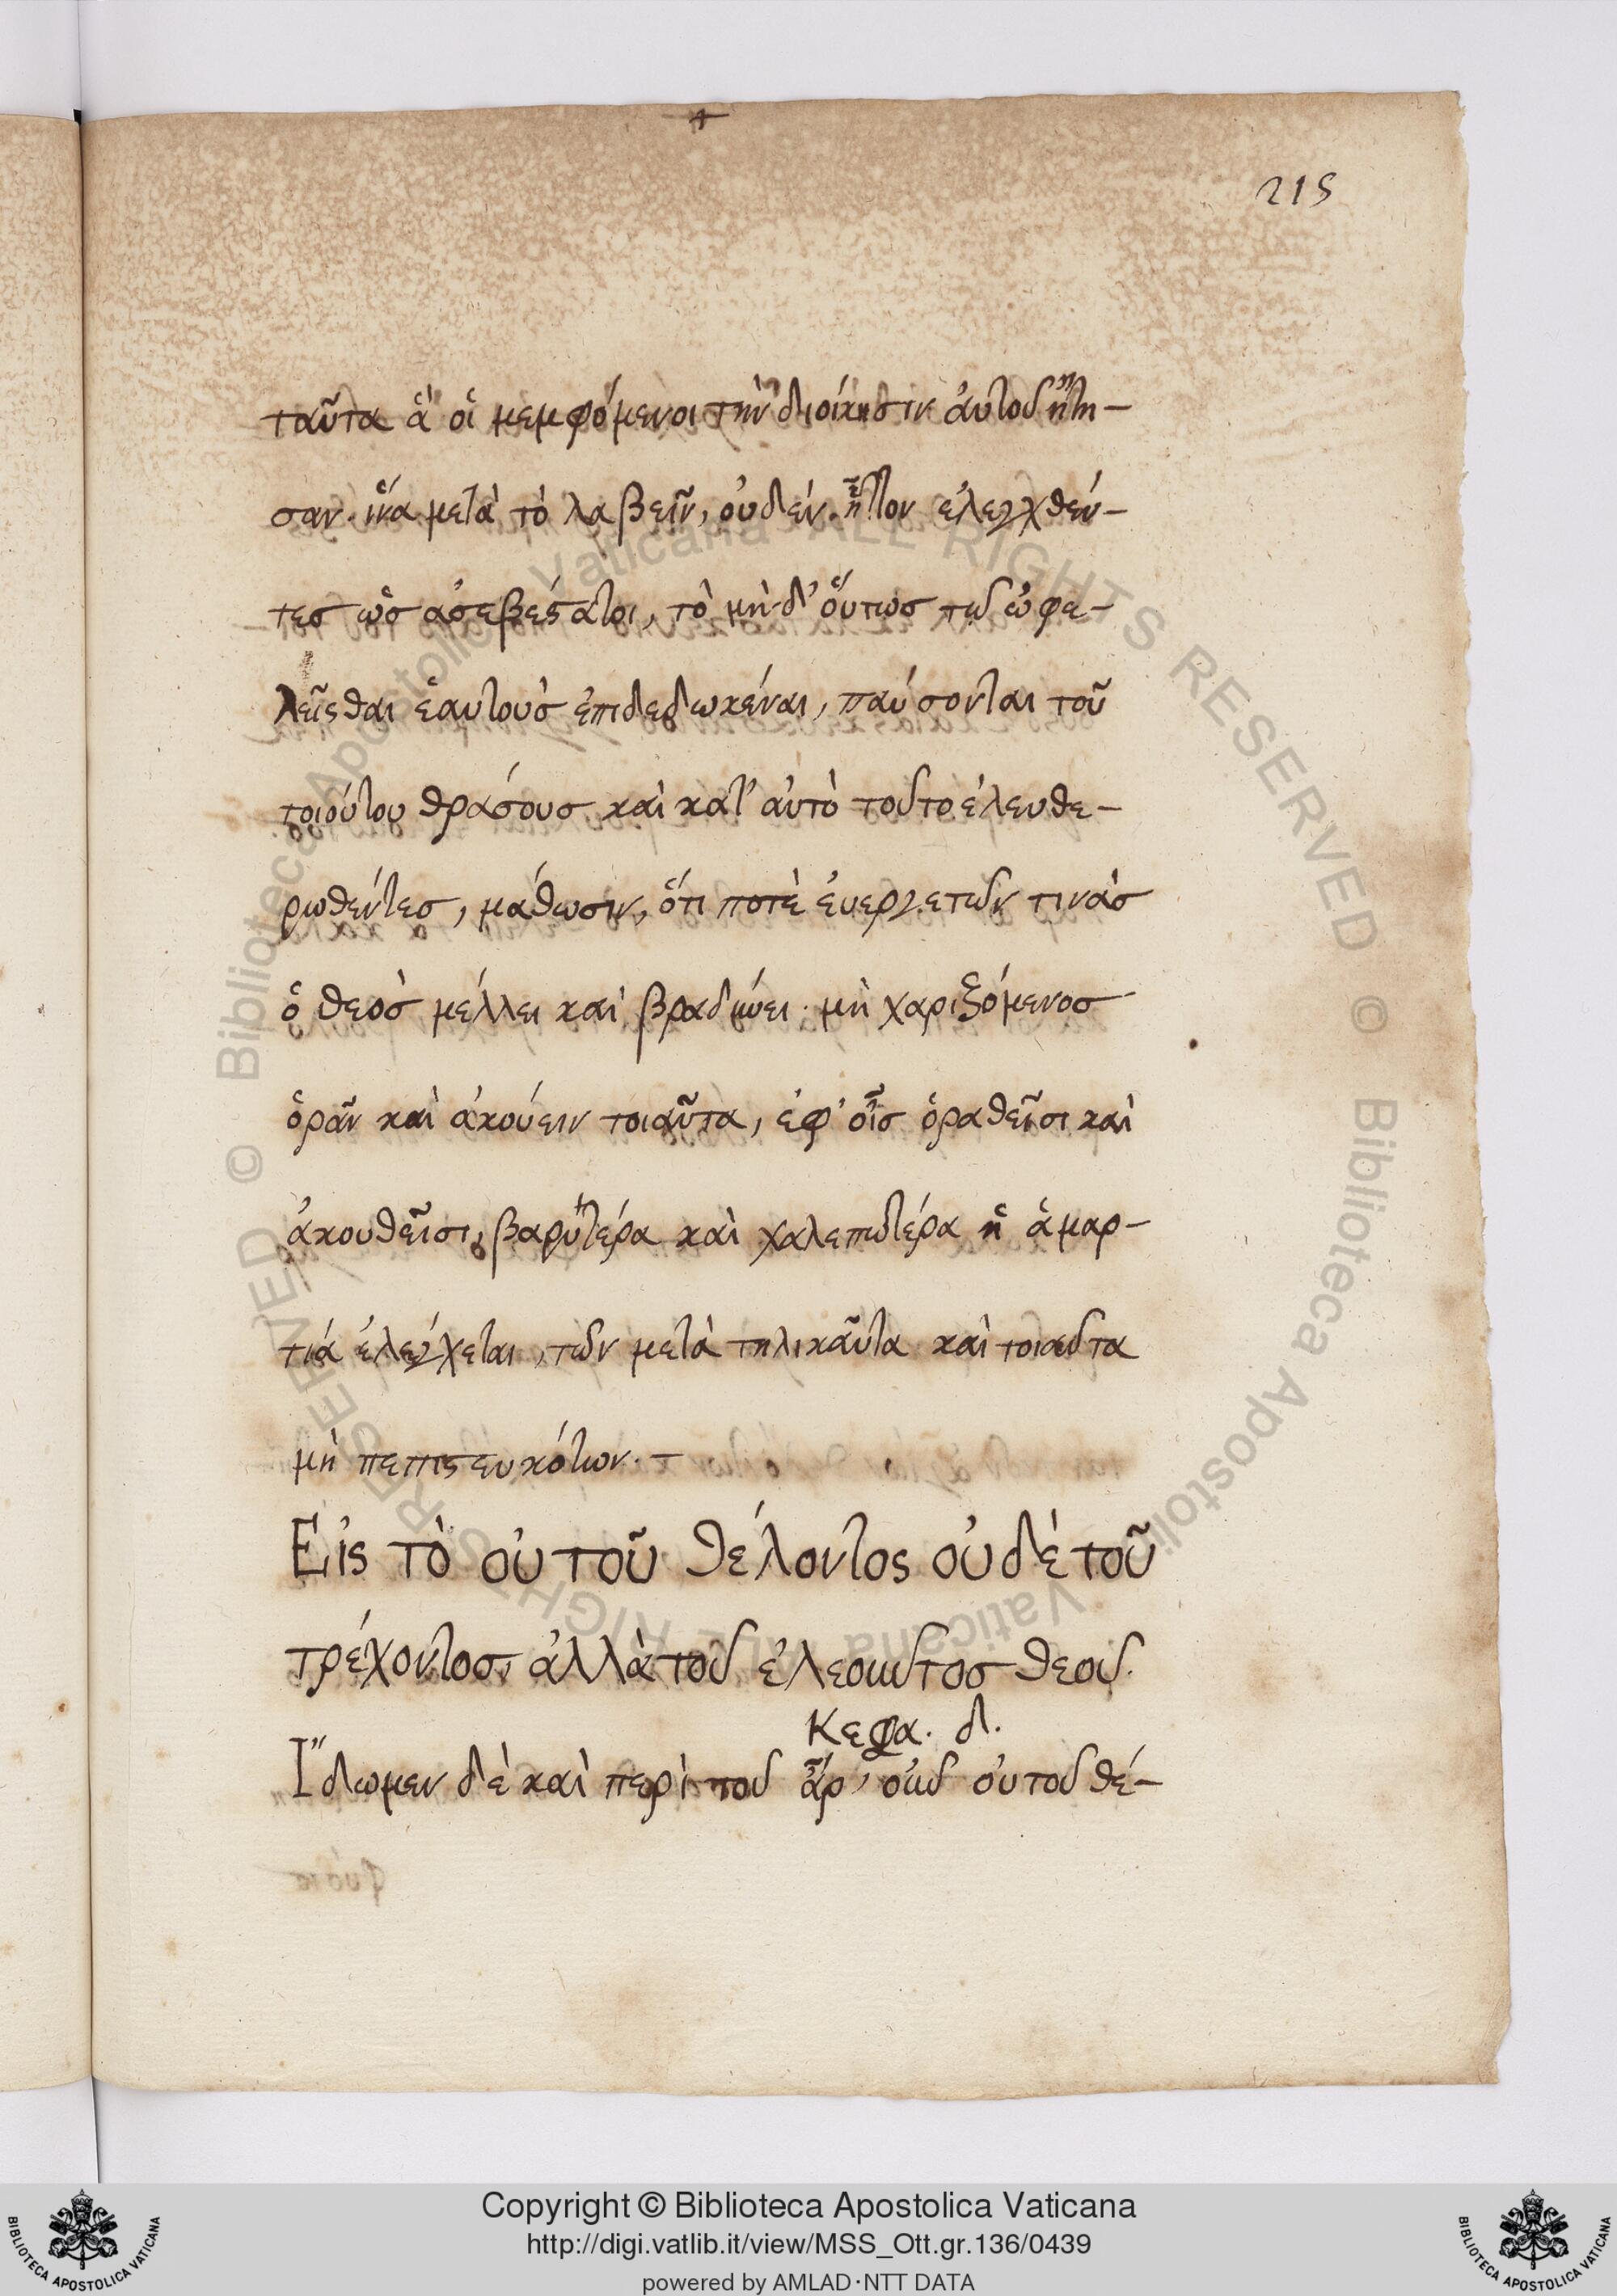 215
ταῦτα ἃ οἱ μεμφόμενοι τὴν διοίκησιν αὐτοῦ ᾔτη-
σαν. ἵνα μετὰ τὸ λαβεῖν, οὐδὲν ἧττον ἐλεγχθέν-
τες ὡς ἀσεβέστατοι, τὸ μὴ δ' οὕτως τῶ ὠφε-
λεῖσθαι ἑαυτοὺς ἐπιδεδωκέναι, παύσονται τοῦ
τοιούτου θράσους καὶ κατ' αὐτὸ τοῦτο ἐλευθε-
ρωθέντες, μάθωσιν, ὅτι ποτὲ εὐεργετῶν τινὰς
ὁ θεὸς μέλλει καὶ βραδύνει· μὴ χαριζόμενος
ὁρᾶν καὶ ἀκούειν τοιαῦτα, ἐφ' οἷς ὁραθεῖσι καὶ
ἀκουθεῖσι, βαρυτέρα καὶ χαλεπωτέρα ἡ ἁμαρ-
τία ἐλέγχεται, τῶν μετὰ τηλικαῦτα καὶ τοιαῦτα
μὴ πεπιστευκότων. –
Εἰς τὸ οὐ τοῦ θέλοντος οὐδὲ τοῦ
τρέχοντος, ἀλλὰ τοῦ ἐλεοῦντος θεοῦ.
Κεφα. δ.
Ἴδωμεν δὲ καὶ περὶ τοῦ ἆρ' οὖν οὐ τοῦ θέ-
Copyright © Biblioteca Apostolica Vaticana
http://digi.vatlib.it/view/MSS_Ott.gr.136/0439
powered by AMLAD·NTT DATA